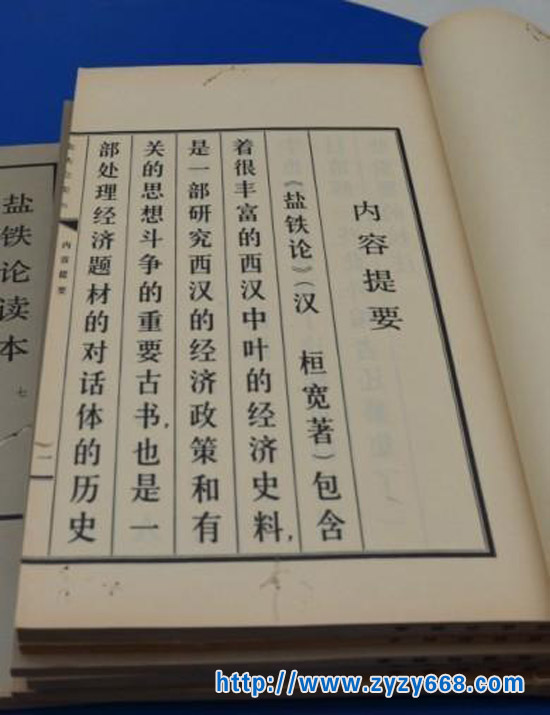 内容提要
《盐铁论》(汉 桓宽著)包含
着很丰富的西汉中叶的经济史料,
是一部研究西汉的经济政策和有
关的思想斗争的重要古书,也是一
部处理经济题材的对话体的历史
内容提要
一
盐铁论读本
七
http://www.zyzy668.com